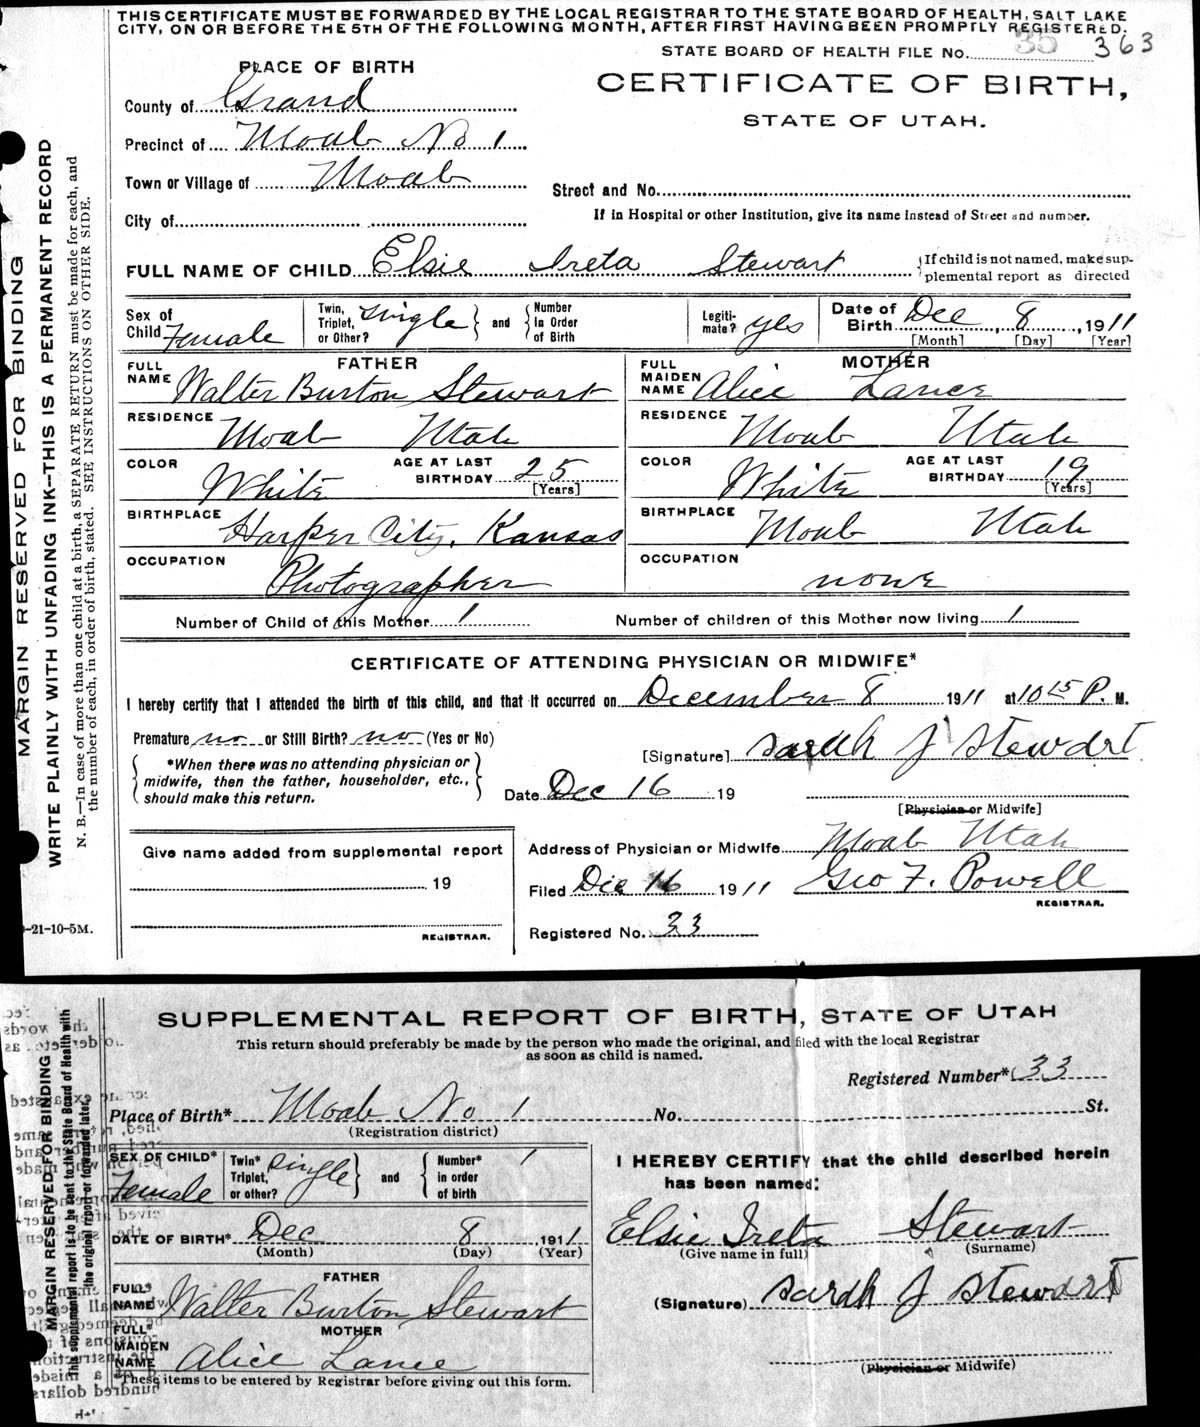 THIS CERTIFICATE MUST BE FORWARDED BY THE LOCAL REGISTRAR TO THE STATE BOARD OF HEALTH, SALT LAKE
CITY, ON OR BEFORE THE 5TH OF THE FOLLOWING MONTH, AFTER FIRST HAVING BEEN PROMPTLY REGISTERED.
STATE BOARD OF HEALTH FILE No. 35 363
PLACE OF BIRTH
CERTIFICATE OF BIRTH,
STATE OF UTAH.
County of Grand
Precinct of Moab No 1
Town or Village of Moab
Street and No.
City of
If in Hospital or other Institution, give its name instead of Street and number.
FULL NAME OF CHILD Elsie Ireta Stewart
If child is not named, make sup-
plemental report as directed
Sex of Child Female
Twin, Triplet, or Other? Single and Number in Order of Birth
Legiti-mate? yes
Date of Birth Dec 8, 1911
[Month] [Day] [Year]
FATHER
FULL NAME Walter Burton Stewart
RESIDENCE Moab Utah
COLOR White AGE AT LAST BIRTHDAY 25 [Years]
BIRTHPLACE Harper City, Kansas
OCCUPATION Photographer
MOTHER
FULL MAIDEN NAME Alice Lance
RESIDENCE Moab Utah
COLOR White AGE AT LAST BIRTHDAY 19 [Years]
BIRTHPLACE Moab Utah
OCCUPATION none
Number of Child of this Mother 1 Number of children of this Mother now living 1
CERTIFICATE OF ATTENDING PHYSICIAN OR MIDWIFE*
I hereby certify that I attended the birth of this child, and that it occurred on December 8 1911 at 10 15 P. M.
Premature no or Still Birth? no (Yes or No)
[Signature] Sarah J Stewart
*When there was no attending physician or
midwife, then the father, householder, etc.,
should make this return.
Date Dec 16 19
[Physician or Midwife]
Give name added from supplemental report
19
REGISTRAR.
Address of Physician or Midwife Moab Utah
Filed Dec 16 1911 Geo F. Powell
REGISTRAR.
Registered No. 33
MARGIN RESERVED FOR BINDING
WRITE PLAINLY WITH UNFADING INK--THIS IS A PERMANENT RECORD
N. B.—In case of more than one child at a birth, a SEPARATE RETURN must be made for each, and
the number of each, in order of birth, stated. SEE INSTRUCTIONS ON OTHER SIDE.
-21-10-5M.
SUPPLEMENTAL REPORT OF BIRTH, STATE OF UTAH
This return should preferably be made by the person who made the original, and filed with the local Registrar
as soon as child is named.
Registered Number* 33
Place of Birth* Moab No 1 No. St.
(Registration district)
SEX OF CHILD* Female
Twin* Triplet, or other? Single and Number* in order of birth 1
DATE OF BIRTH* Dec 8 1911
(Month) (Day) (Year)
FATHER
FULL* NAME Walter Burton Stewart
MOTHER
FULL* MAIDEN NAME Alice Lance
*These items to be entered by Registrar before giving out this form.
I HEREBY CERTIFY that the child described herein
has been named:
Elsie Ireta Stewart
(Give name in full) (Surname)
(Signature) Sarah J Stewart
(Physician or Midwife)
MARGIN RESERVED FOR BINDING
This supplemental report is to be sent to the State Board of Health with
the original report or forwarded later.